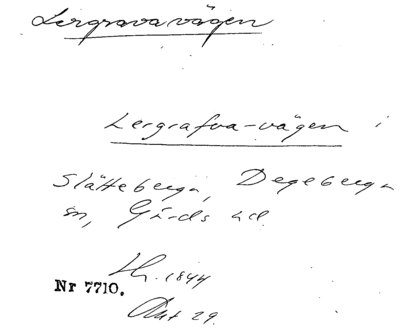 Lergravavägen
Lergrafva-vägen i
Slätteberga, Degeberga
sn, Gärds hd.
Lhr. 1844
Nr 7710.
Akt 29.